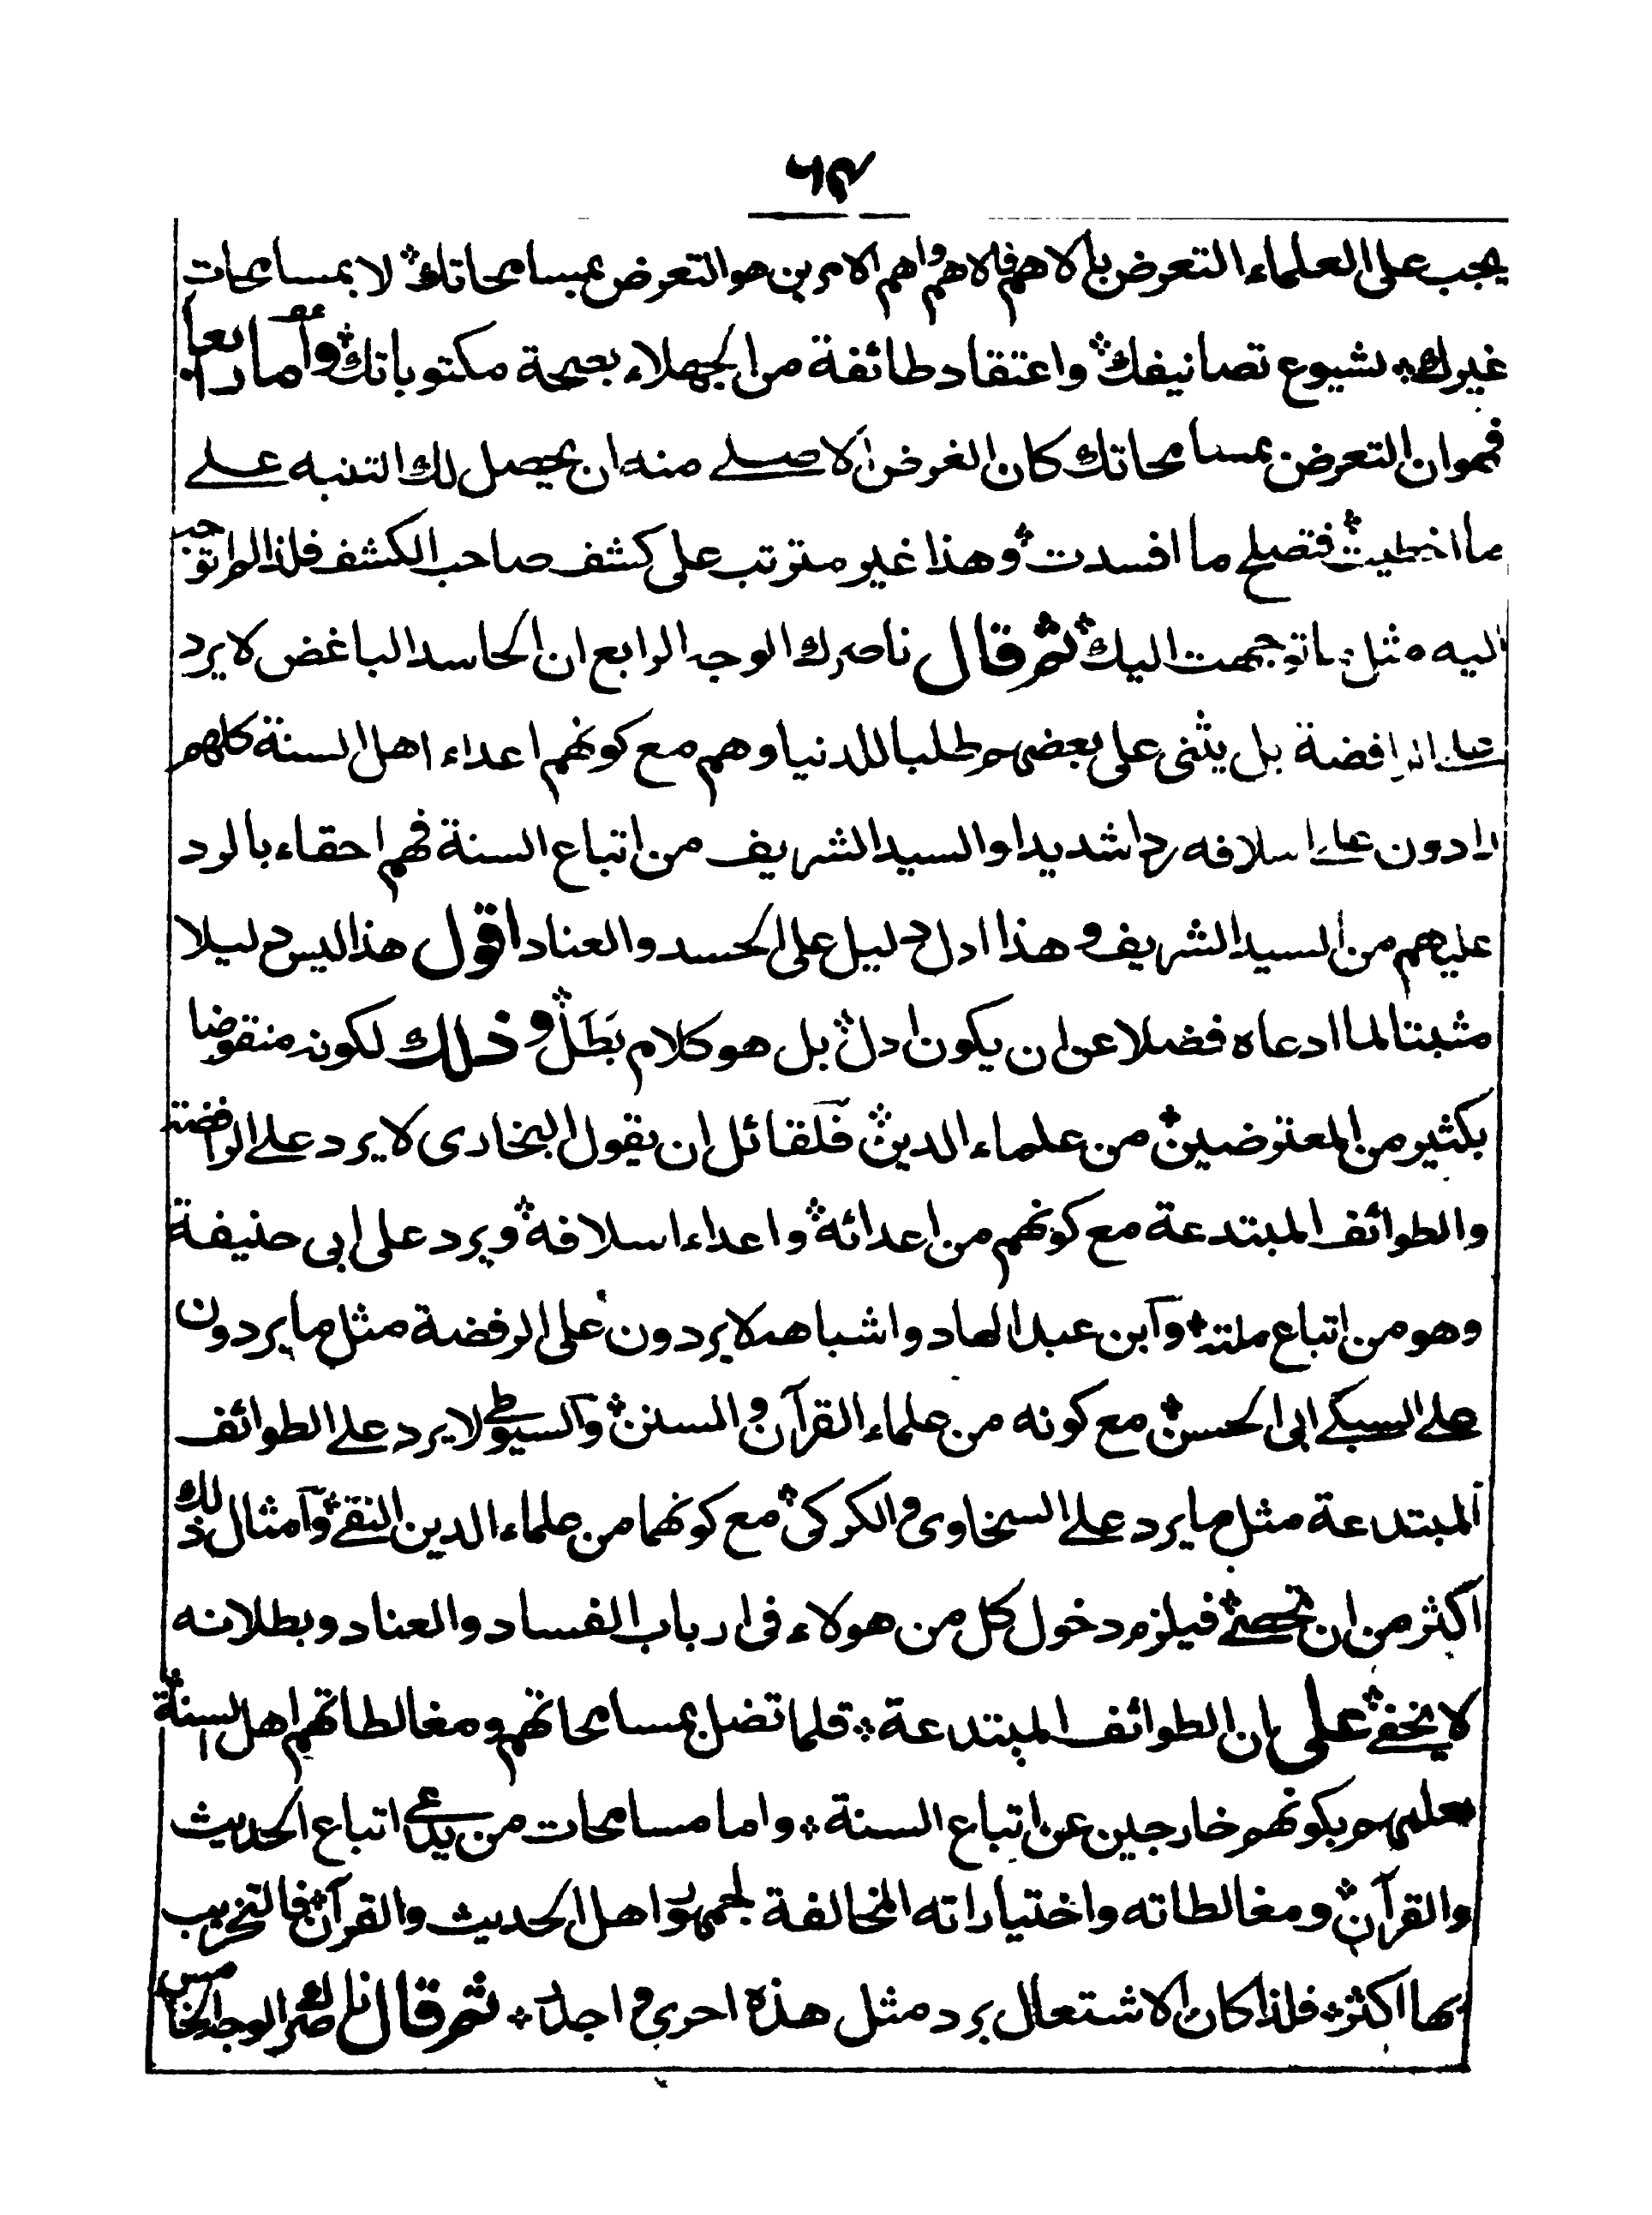 يجب على العلماء التعرض بالاهم فالاهم واهم الامرين هو التعرض بمسامحاتك لا بمسامحات
غيرك لشيوع تصانيفك واعتقاد طائفة من الجهلاء بصحة مكتوباتك وأما رابعا
فهو ان التعرض بمسامحاتك كان الغرض الاصلے منه ان يحصل لك التنبه علے
ما اخطيت فتصلح ما افسدت وهذا غير مترتب على كشف صاحب الكشف فلذا لم اتوجه
اليه مثل ما توجهت اليك ثم قال ناصرك الوجه الرابع ان الحاسد الباغض لا يرد
علے الرافضة بل يثنى على بعضهم طلبا للدنيا وهم مع كونهم اعداء اهل السنة كلهم
رادون علے اسلافه ردا شديدا والسيد الشريف من اتباع السنة فهم احقاء بالرد
عليهم من السيد الشريف وهذا ادل دليل على الحسد والعناد اقول هذا ليس دليلا
مثبتا لما ادعاه فضلا عن ان يكون ادل بل هو كلام بَطَل وذلك لكونه منقوضا
بكثير من المعترضين من علماء الدين فلقائل ان يقول البخارى لا يرد علے الرافضة
والطوائف المبتدعة مع كونهم من اعدائه واعداء اسلافه ويرد على ابى حنيفة
وهو من اتباع ملته وآبن عبد الهاد واشباهه لا يردون على الرفضة مثل ما يردون
علے السبكے ابى الحسن مع كونه من علماء القرآن والسنن وآلسيوطے لا يرد علے الطوائف
المبتدعة مثل ما يرد علے السخاوى والكركى مع كونهما من علماء الدين النقے وآمثال ذلك
اكثر من ان تحصے فيلزم دخول كل من هولاء فى ارباب الفساد والعناد وبطلانه
لا يخفے على ان الطوائف المبتدعة قلما تضل بمسامحاتهم ومغالطاتهم اهل السنة
لعلمهم بكونهم خارجين عن اتباع السنة واما مسامحات من يدعے اتباع الحديث
والقرآن ومغالطاته واختياراته المخالفة لجمهور اهل الحديث والقرآن فالتخريب
بها اكثر فلذا كان الاشتعال برد مثل هذه احرى واجدر ثم قال ناصرك الوجه الخامس